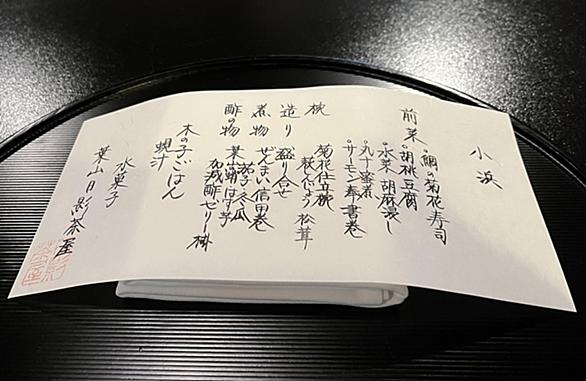 小浜
前菜、鯛の菊花寿司
・胡桃豆腐
・水菜 胡麻浸し
・丸十蜜煮
・サーモン奉書巻
椀 菊花仕立
萩しんじょう 松茸
造り 盛り合せ
煮物 ぜんまい信田巻
茄子 冬瓜
酢の物 はす芋
加減酢ゼリー掛
木の子ごはん
蜆汁
水菓子
葉山日影茶屋